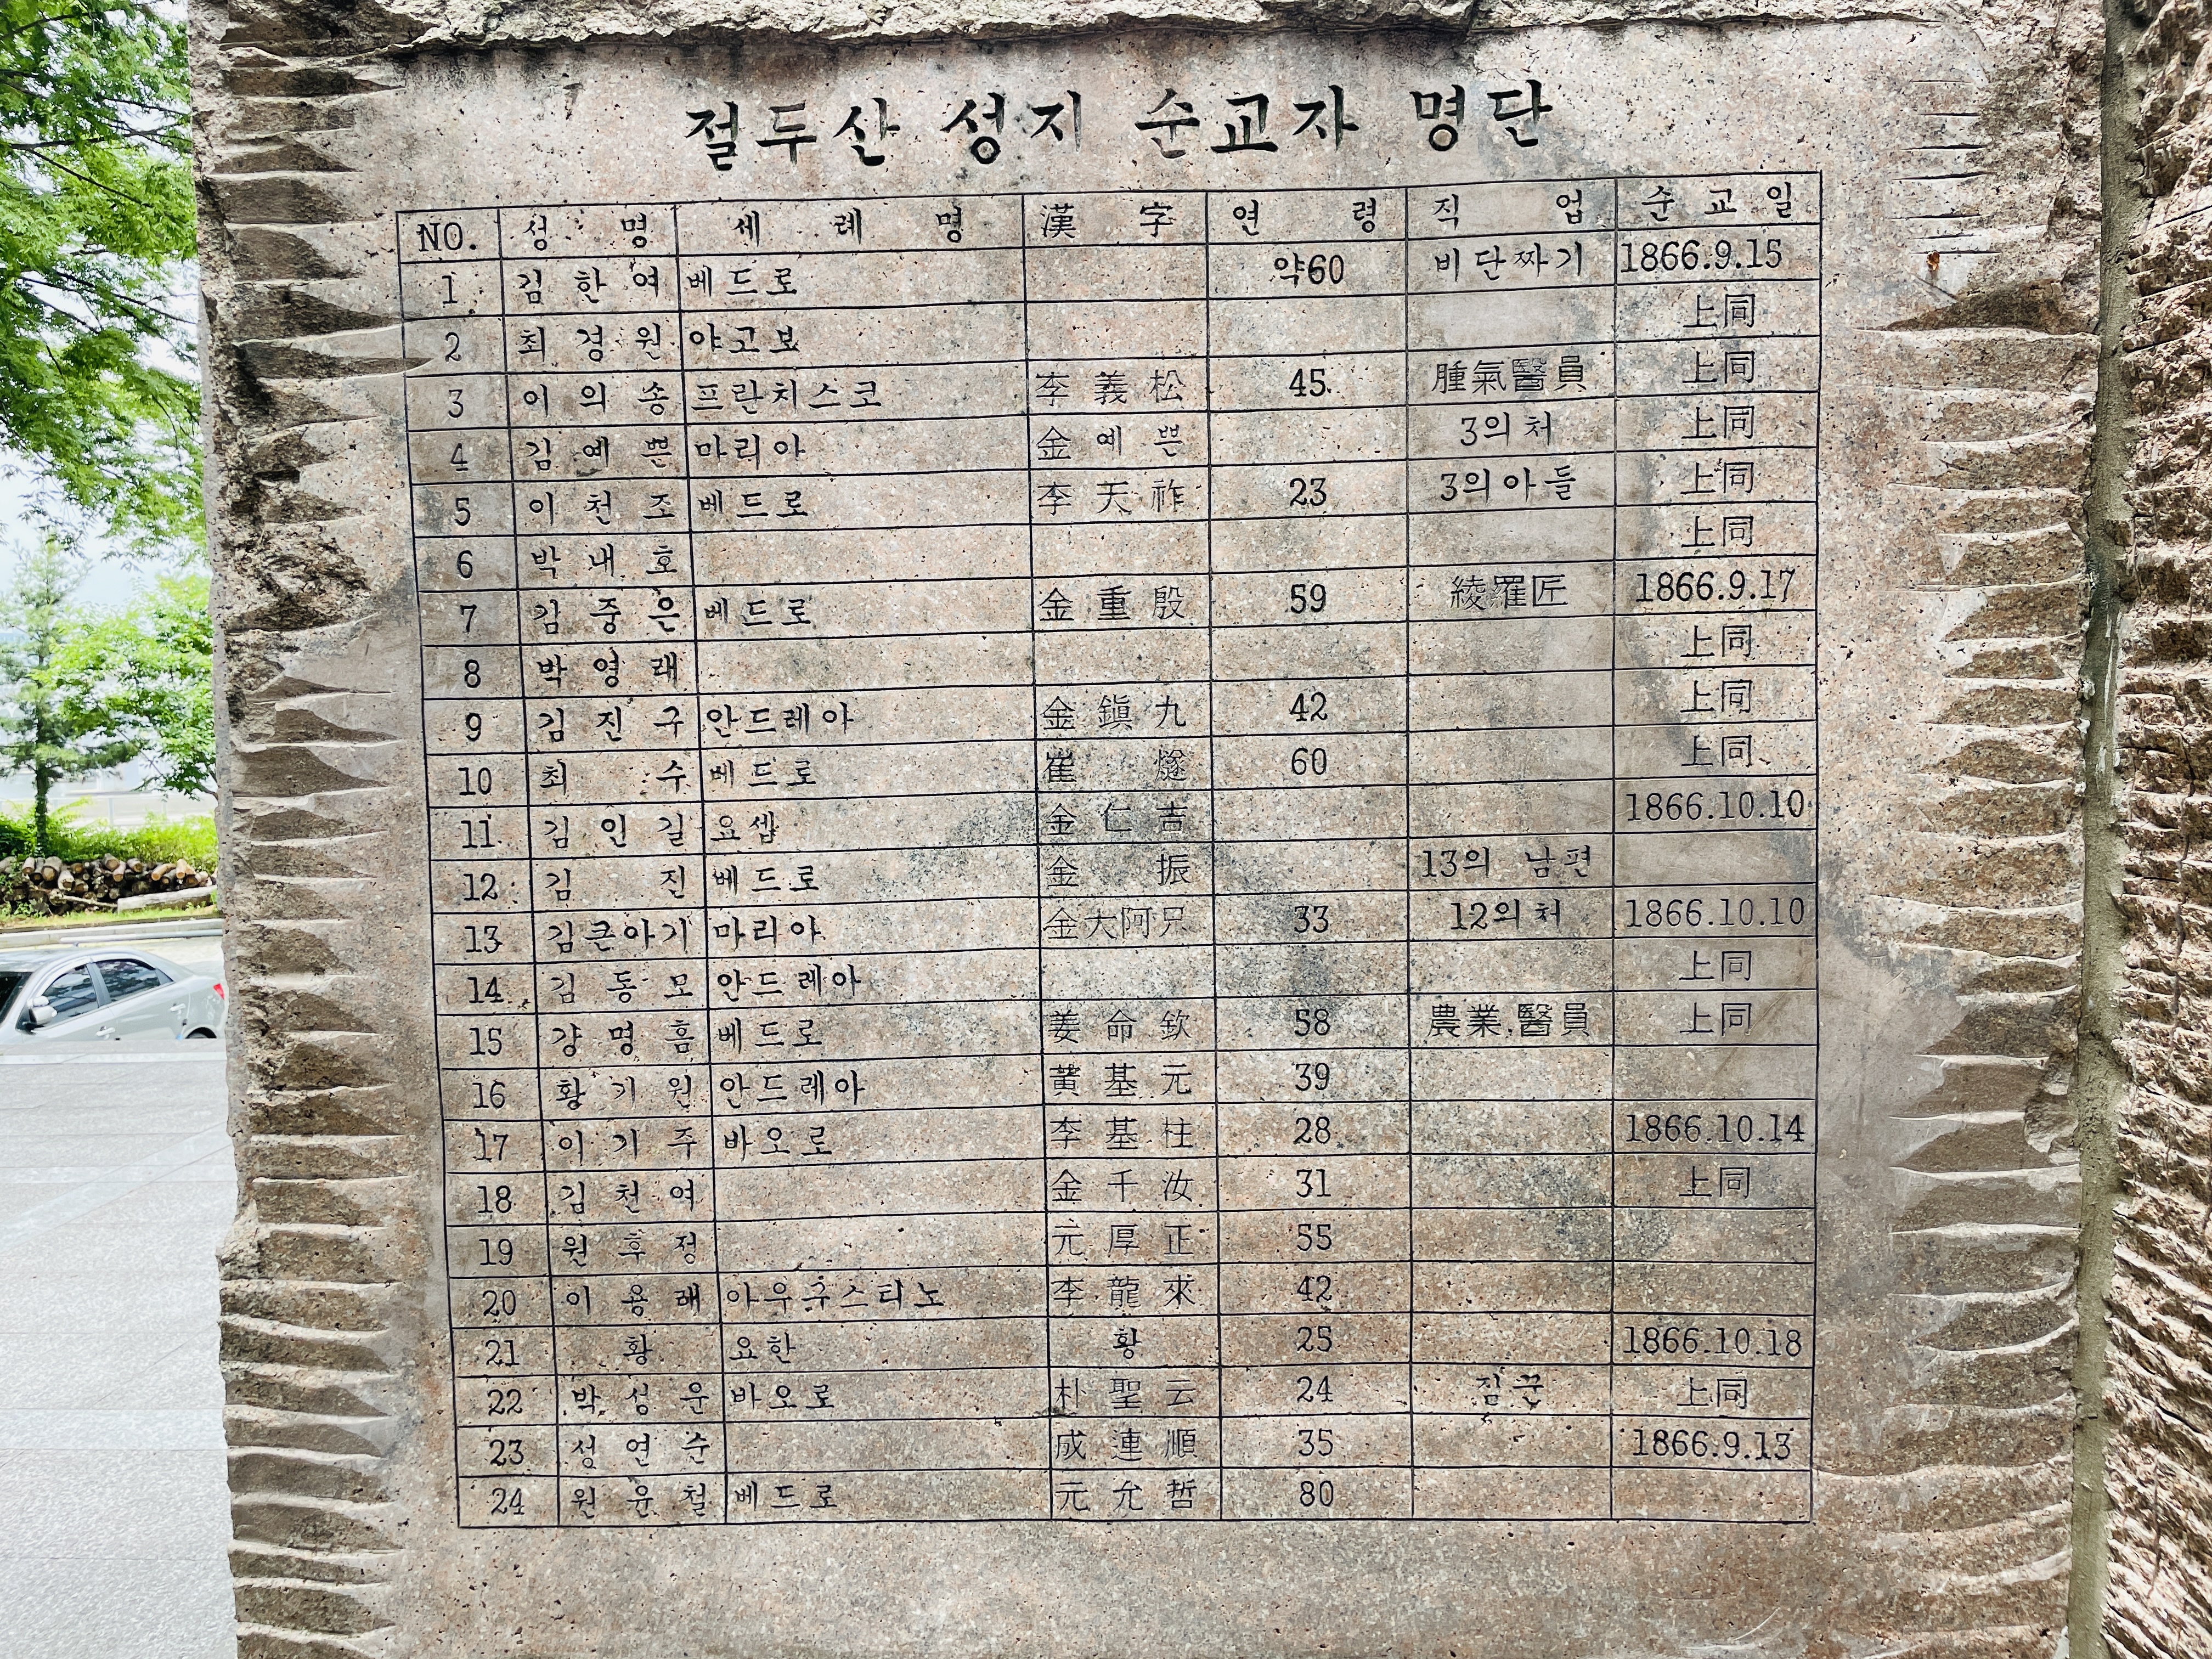 절두산 성지 순교자 명단
NO. 성 명 세 례 명 漢 字 연 령 직 업 순 교 일
1 김 한 여 베드로 약60 비단짜기 1866.9.15
2 최 경 원 야고보 上同
3 이 의 송 프란치스코 李 義 松 45 腫氣醫員 上同
4 김 예 쁜 마리아 金 예 쁜 3의처 上同
5 이 천 조 베드로 李 天 祚 23 3의아들 上同
6 박 내 호 上同
7 김 중 은 베드로 金 重 殷 59 綾羅匠 1866.9.17
8 박 영 래 上同
9 김 진 구 안드레아 金 鎭 九 42 上同
10 최 수 베드로 崔 燧 60 上同
11 김 인 길 요셉 金 仁 吉 1866.10.10
12 김 진 베드로 金 振 13의 남편
13 김큰아기 마리아 金大阿只 33 12의처 1866.10.10
14 김 동 모 안드레아 上同
15 강 명 흠 베드로 姜 命 欽 58 農業,醫員 上同
16 황 기 원 안드레아 黃 基 元 39
17 이 기 주 바오로 李 基 柱 28 1866.10.14
18 김 천 여 金 千 汝 31 上同
19 원 후 정 元 厚 正 55
20 이 용 래 아우구스티노 李 龍 來 42
21 황 요한 황 25 1866.10.18
22 박 성 운 바오로 朴 聖 云 24 짐꾼 上同
23 성 연 순 成 連 順 35 1866.9.13
24 원 윤 철 베드로 元 允 哲 80